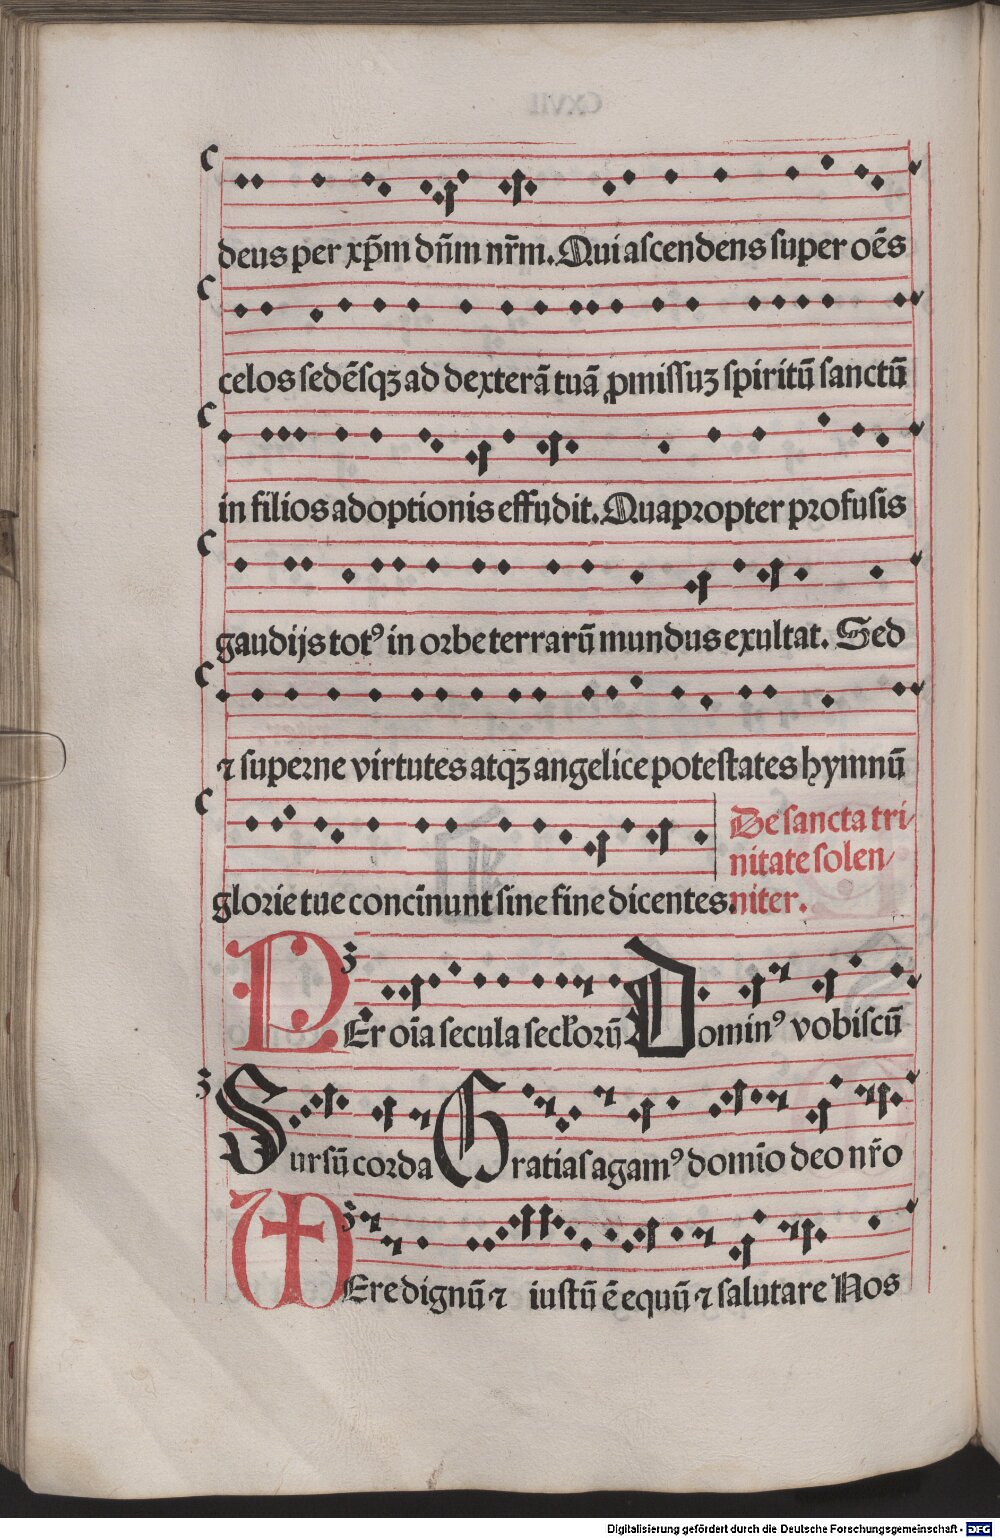 deus per xp̄m dn̄m nr̄m. Qui ascendens super oēs
celos sedēsqꝫ ad dexterā tuā ꝓmissuꝫ spiritū sanctū
in filios adoptionis effudit. Quapropter profusis
gaudijs totꝰ in orbe terrarū mundus exultat. Sed
⁊ superne virtutes atqꝫ angelice potestates hymnū
glorie tue concīnunt sine fine dicentes.
De sancta tri/
nitate solen/
niter.
PEr oīa secula secl̄orū Dominꝰ vobiscū
Sursū corda Gratias agamꝰ domīo deo nr̄o
VEre dignū ⁊ iustū ē equū ⁊ salutare Nos
Digitalisierung gefördert durch die Deutsche Forschungsgemeinschaft - DFG